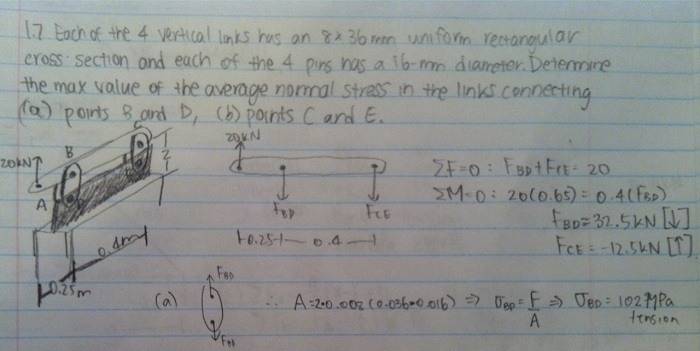 1.7 Each of the 4 vertical links has an 8x36mm uniform rectangular
cross section and each of the 4 pins has a 16-mm diameter. Determine
the max value of the average normal stress in the links connecting
(a) points B and D, (b) points C and E.
20kN
B
C
A
0.25m
0.4m
20kN
FBD
FCE
0.25
0.4
ΣF=0: FBD+FCE = 20
ΣM=0: 20(0.65) = 0.4(FBD)
FBD=32.5kN [↓]
FCE = -12.5kN [↑]
(a)
FBD
FBD
∴ A=2·0.008(0.036-0.016) => σBD = F/A => σBD = 102MPa
tension